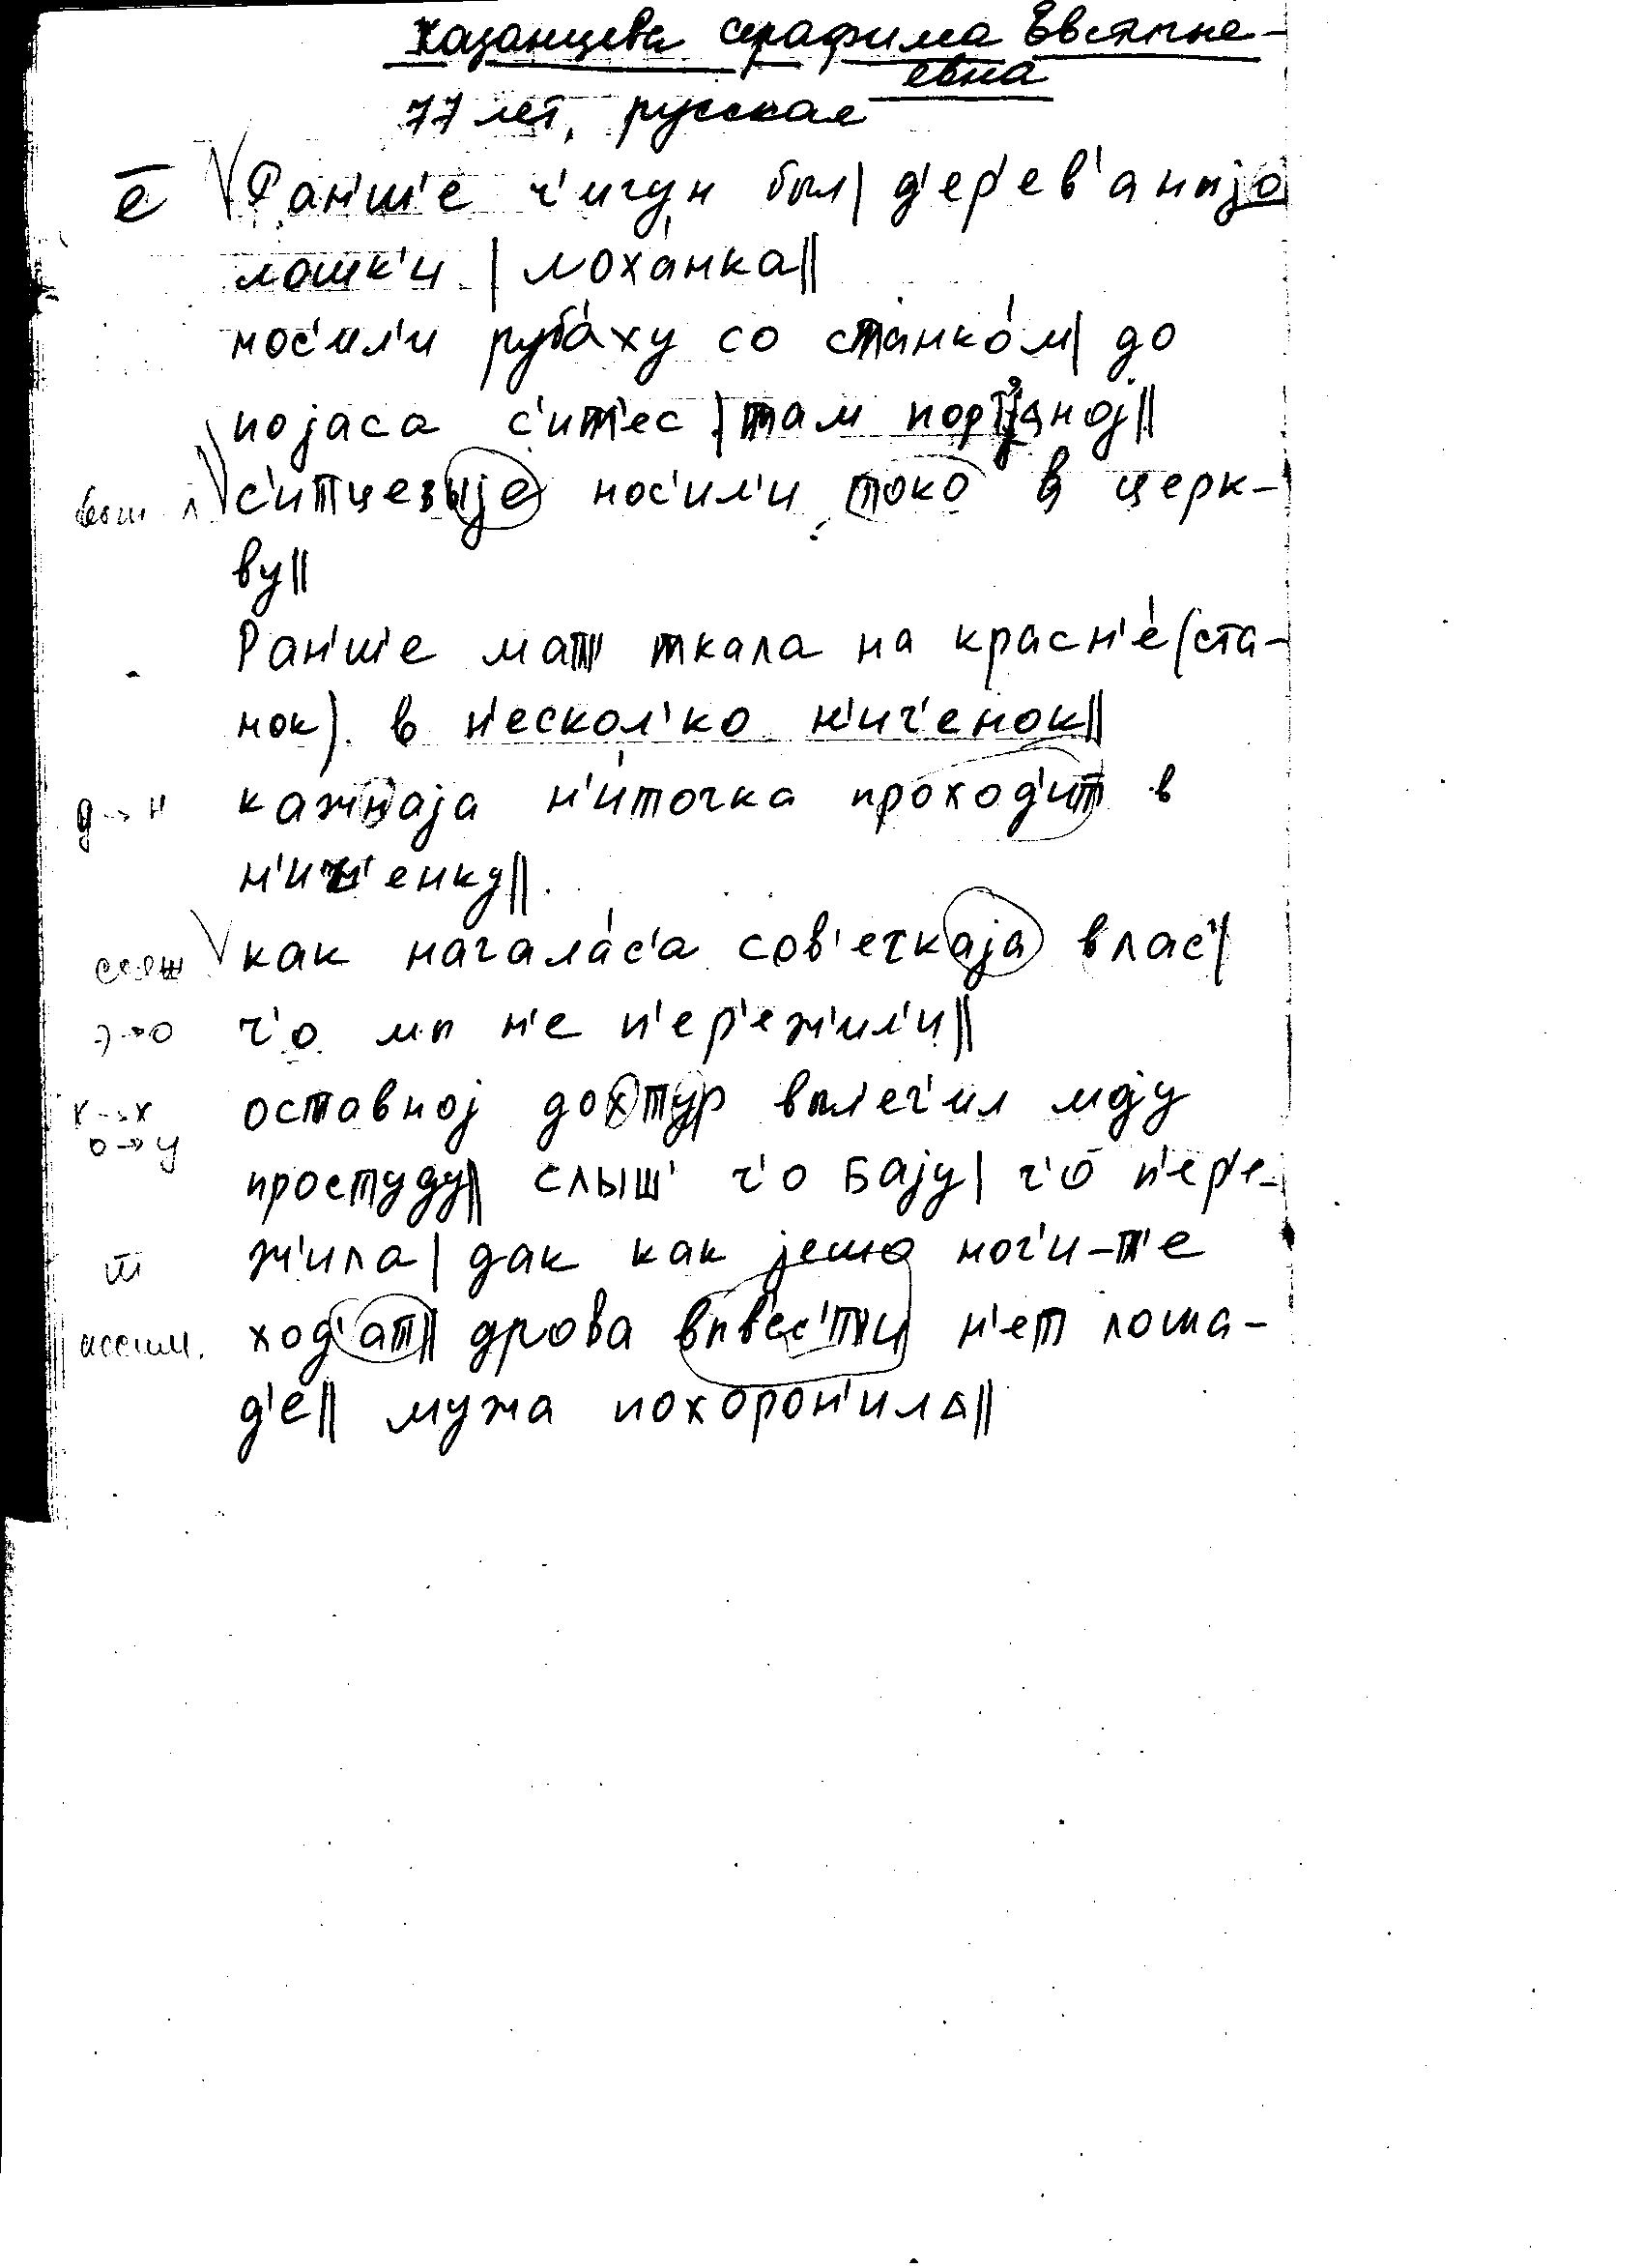 Казанцева Серафима Евстигне-
евна
77 лет, русская
ē Ран'ш'е ч'игун был| д'ер'ев'аныјо
лошк'и | лоха́нка||
нос'ил'и руба́ху со станко́м| до
појаса с'ит'ес | там портјаној||
с'итцевыје нос'ил'и токо в церк-
ву||
Ран'ш'е мат' ткала на красн'е́ (ста-
нок). в н'ескол'ко н'ич'енок||
д→н кажнаја н'иточка проход'ит в
н'ич'енку||.
стяж как начала́с'а сов'ецкаја влас'|
э→о ч'о мы н'е п'ер'ежил'и||
к→х оставној дохтур выл'еч'ил мују
о→у
простуду|| слыш' ч'о бају| ч'о п'ер'е-
ш̄ ж'ила| дак как јешо ног'и-т'е
ассим. ход'ат|| дрова выв'ес'ти н'ет лоша-
д'е|| мужа похорон'ила||